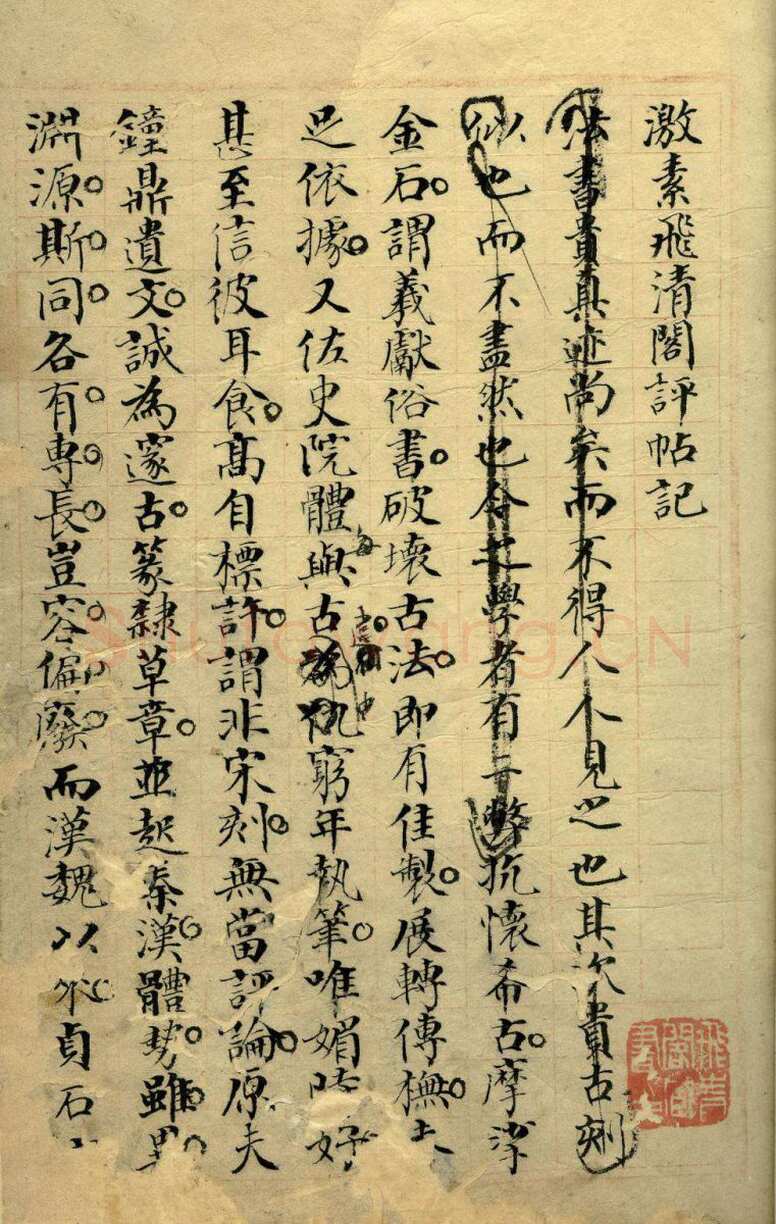 激素飛清閣評帖記
法書貴真迹尚矣而不得人人見之也其次貴古刻
似也而不盡然也今之學者有二弊抗懷希古摩挲
金石謂羲獻俗書破壞古法即有佳製展轉傳橅
足依據又佐史院體與古為仇窮年執筆唯媚時好
甚至信彼耳食高自標許謂非宋刻無當評論原夫
鐘鼎遺文誠為邃古篆隸草章並起秦漢體勢雖
淵源斯同各有專長豈容偏廢而漢魏以來貞石